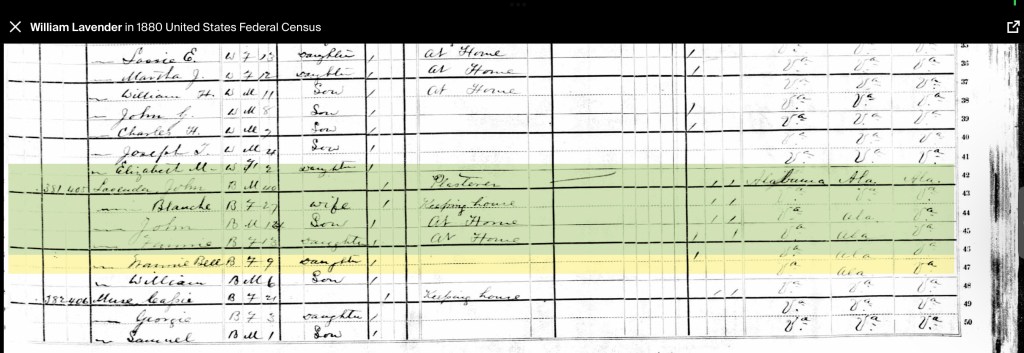 William Lavender in 1880 United States Federal Census
— E. W F 13 Daughter / At Home / Va Va Va 35
— Martha J. W F 12 Daughter / At Home / Va Va Va 36
— William H. W M 11 Son / At Home Va Va Va 37
— John W M 8 Son / Va Va Va 38
— Charles H. W M 7 Son / Va Va Va 39
— Joseph T. W M 4 Son / Va Va Va 40
— Elizabeth M. W F 2 Daughter / Va Va Va 41
381 405 Lavender John B M 40 / Plasterer / / Alabama Ala. Ala. 42
— Blanche B F 27 Wife / Keeping house / / Va Va Va 43
— John B M 14 Son / At Home / / Va Ala Va 44
— Fannie B F 13 Daughter / At Home / / Va Ala Va 45
— Nannie Bell B F 9 Daughter / / Va Ala Va 46
— William B M 6 Son / Va Ala Va 47
382 406 Muse B F 21 / Keeping house / / Va Va Va 48
— Georgie B F 3 Daughter / Va Va Va 49
— Samuel B M 1 Son / Va Va Va 50